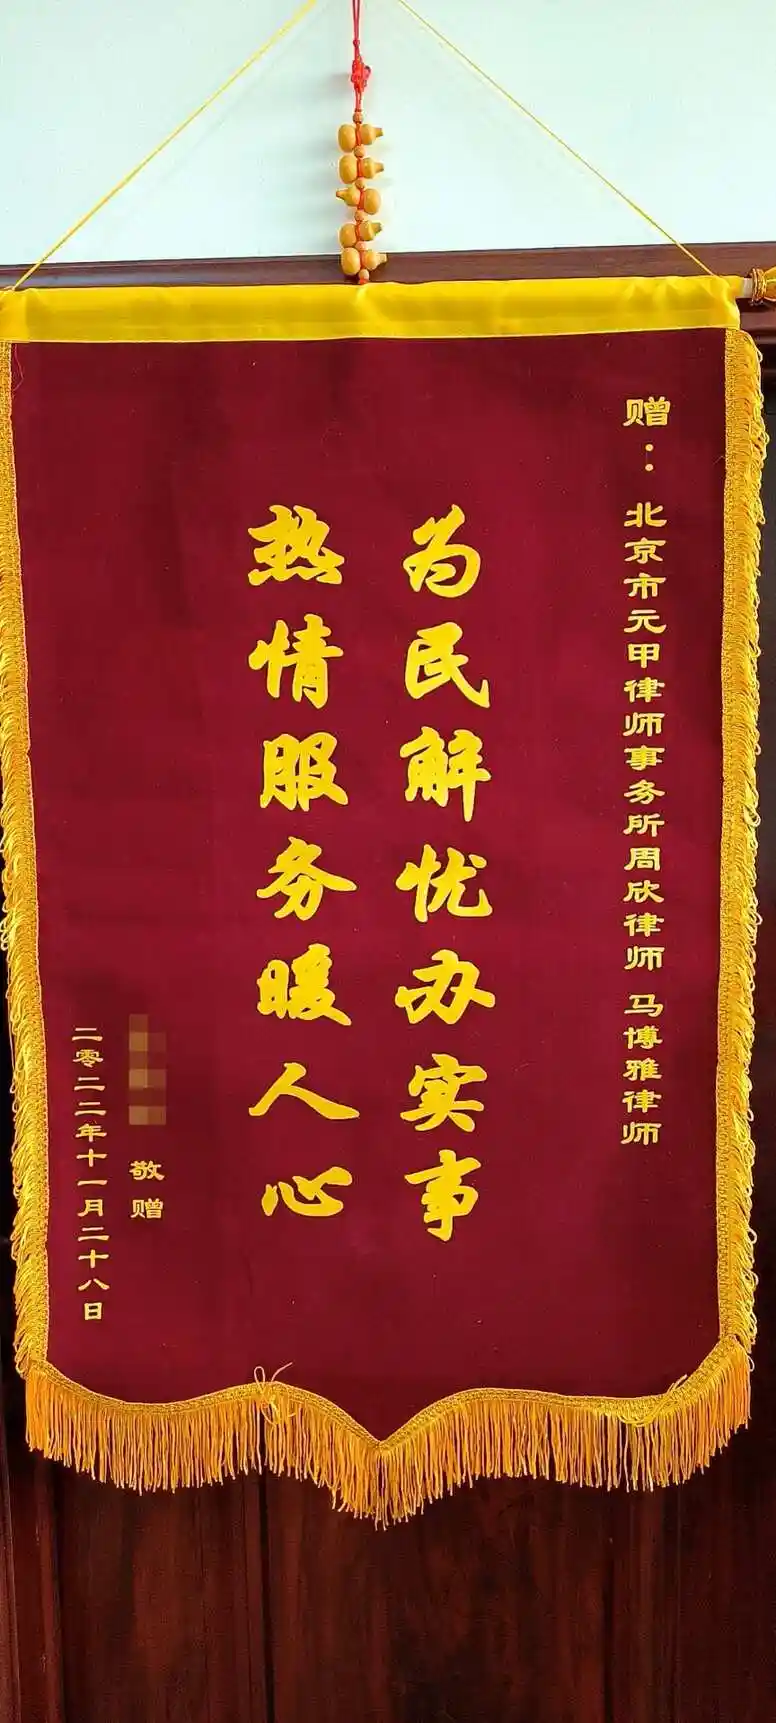 赠：北京市元甲律师事务所周欣律师 马博雅律师
为民解忧办实事
热情服务暖人心
敬赠
二零二二年十一月二十八日